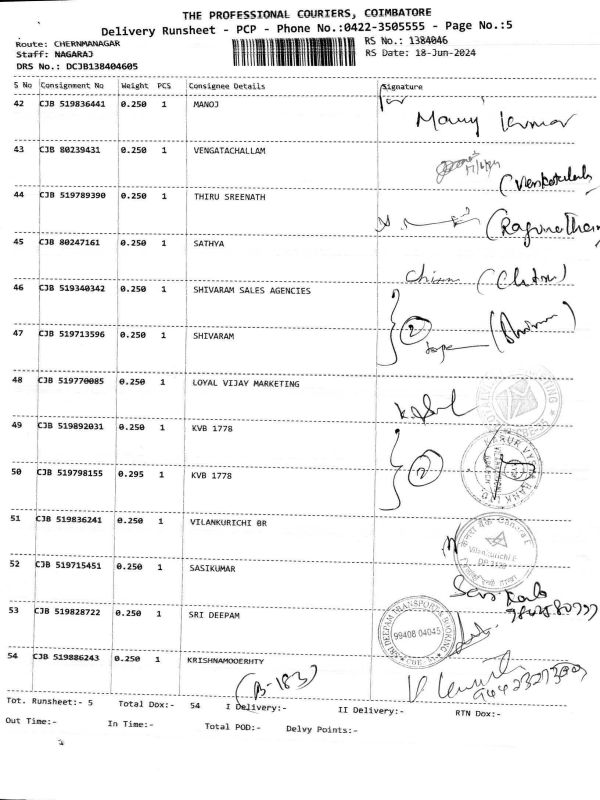 THE PROFESSIONAL COURIERS, COIMBATORE
Delivery Runsheet - PCP - Phone No.:0422-3505555 - Page No.:5
Route: CHERNMANAGAR RS No.: 1384046
Staff: NAGARAJ RS Date: 18-Jun-2024
DRS No.: DCJB138404605
S No Consignment No Weight PCS Consignee Details Signature
42 CJB 519836441 0.250 1 MANOJ
43 CJB 80239431 0.250 1 VENGATACHALLAM
44 CJB 519789390 0.250 1 THIRU SREENATH
45 CJB 80247161 0.250 1 SATHYA
46 CJB 519340342 0.250 1 SHIVARAM SALES AGENCIES
47 CJB 519713596 0.250 1 SHIVARAM
2
48 CJB 519770085 0.250 1 LOYAL VIJAY MARKETING
49 CJB 519892031 0.250 1 KVB 1778
50 CJB 519798155 0.295 1 KVB 1778
2
51 CJB 519836241 0.250 1 VILANKURICHI BR
52 CJB 519715451 0.250 1 SASIKUMAR
53 CJB 519828722 0.250 1 SRI DEEPAM
SRI DEEPAM TRANSPORT & BOOKING
99408 04045
54 CJB 519886243 0.250 1 KRISHNAMOOERHTY
(B-183)
Tot. Runsheet:- 5 Total Dox:- 54 I Delivery:- II Delivery:- RTN Dox:-
Out Time:- In Time:- Total POD:- Delvy Points:-